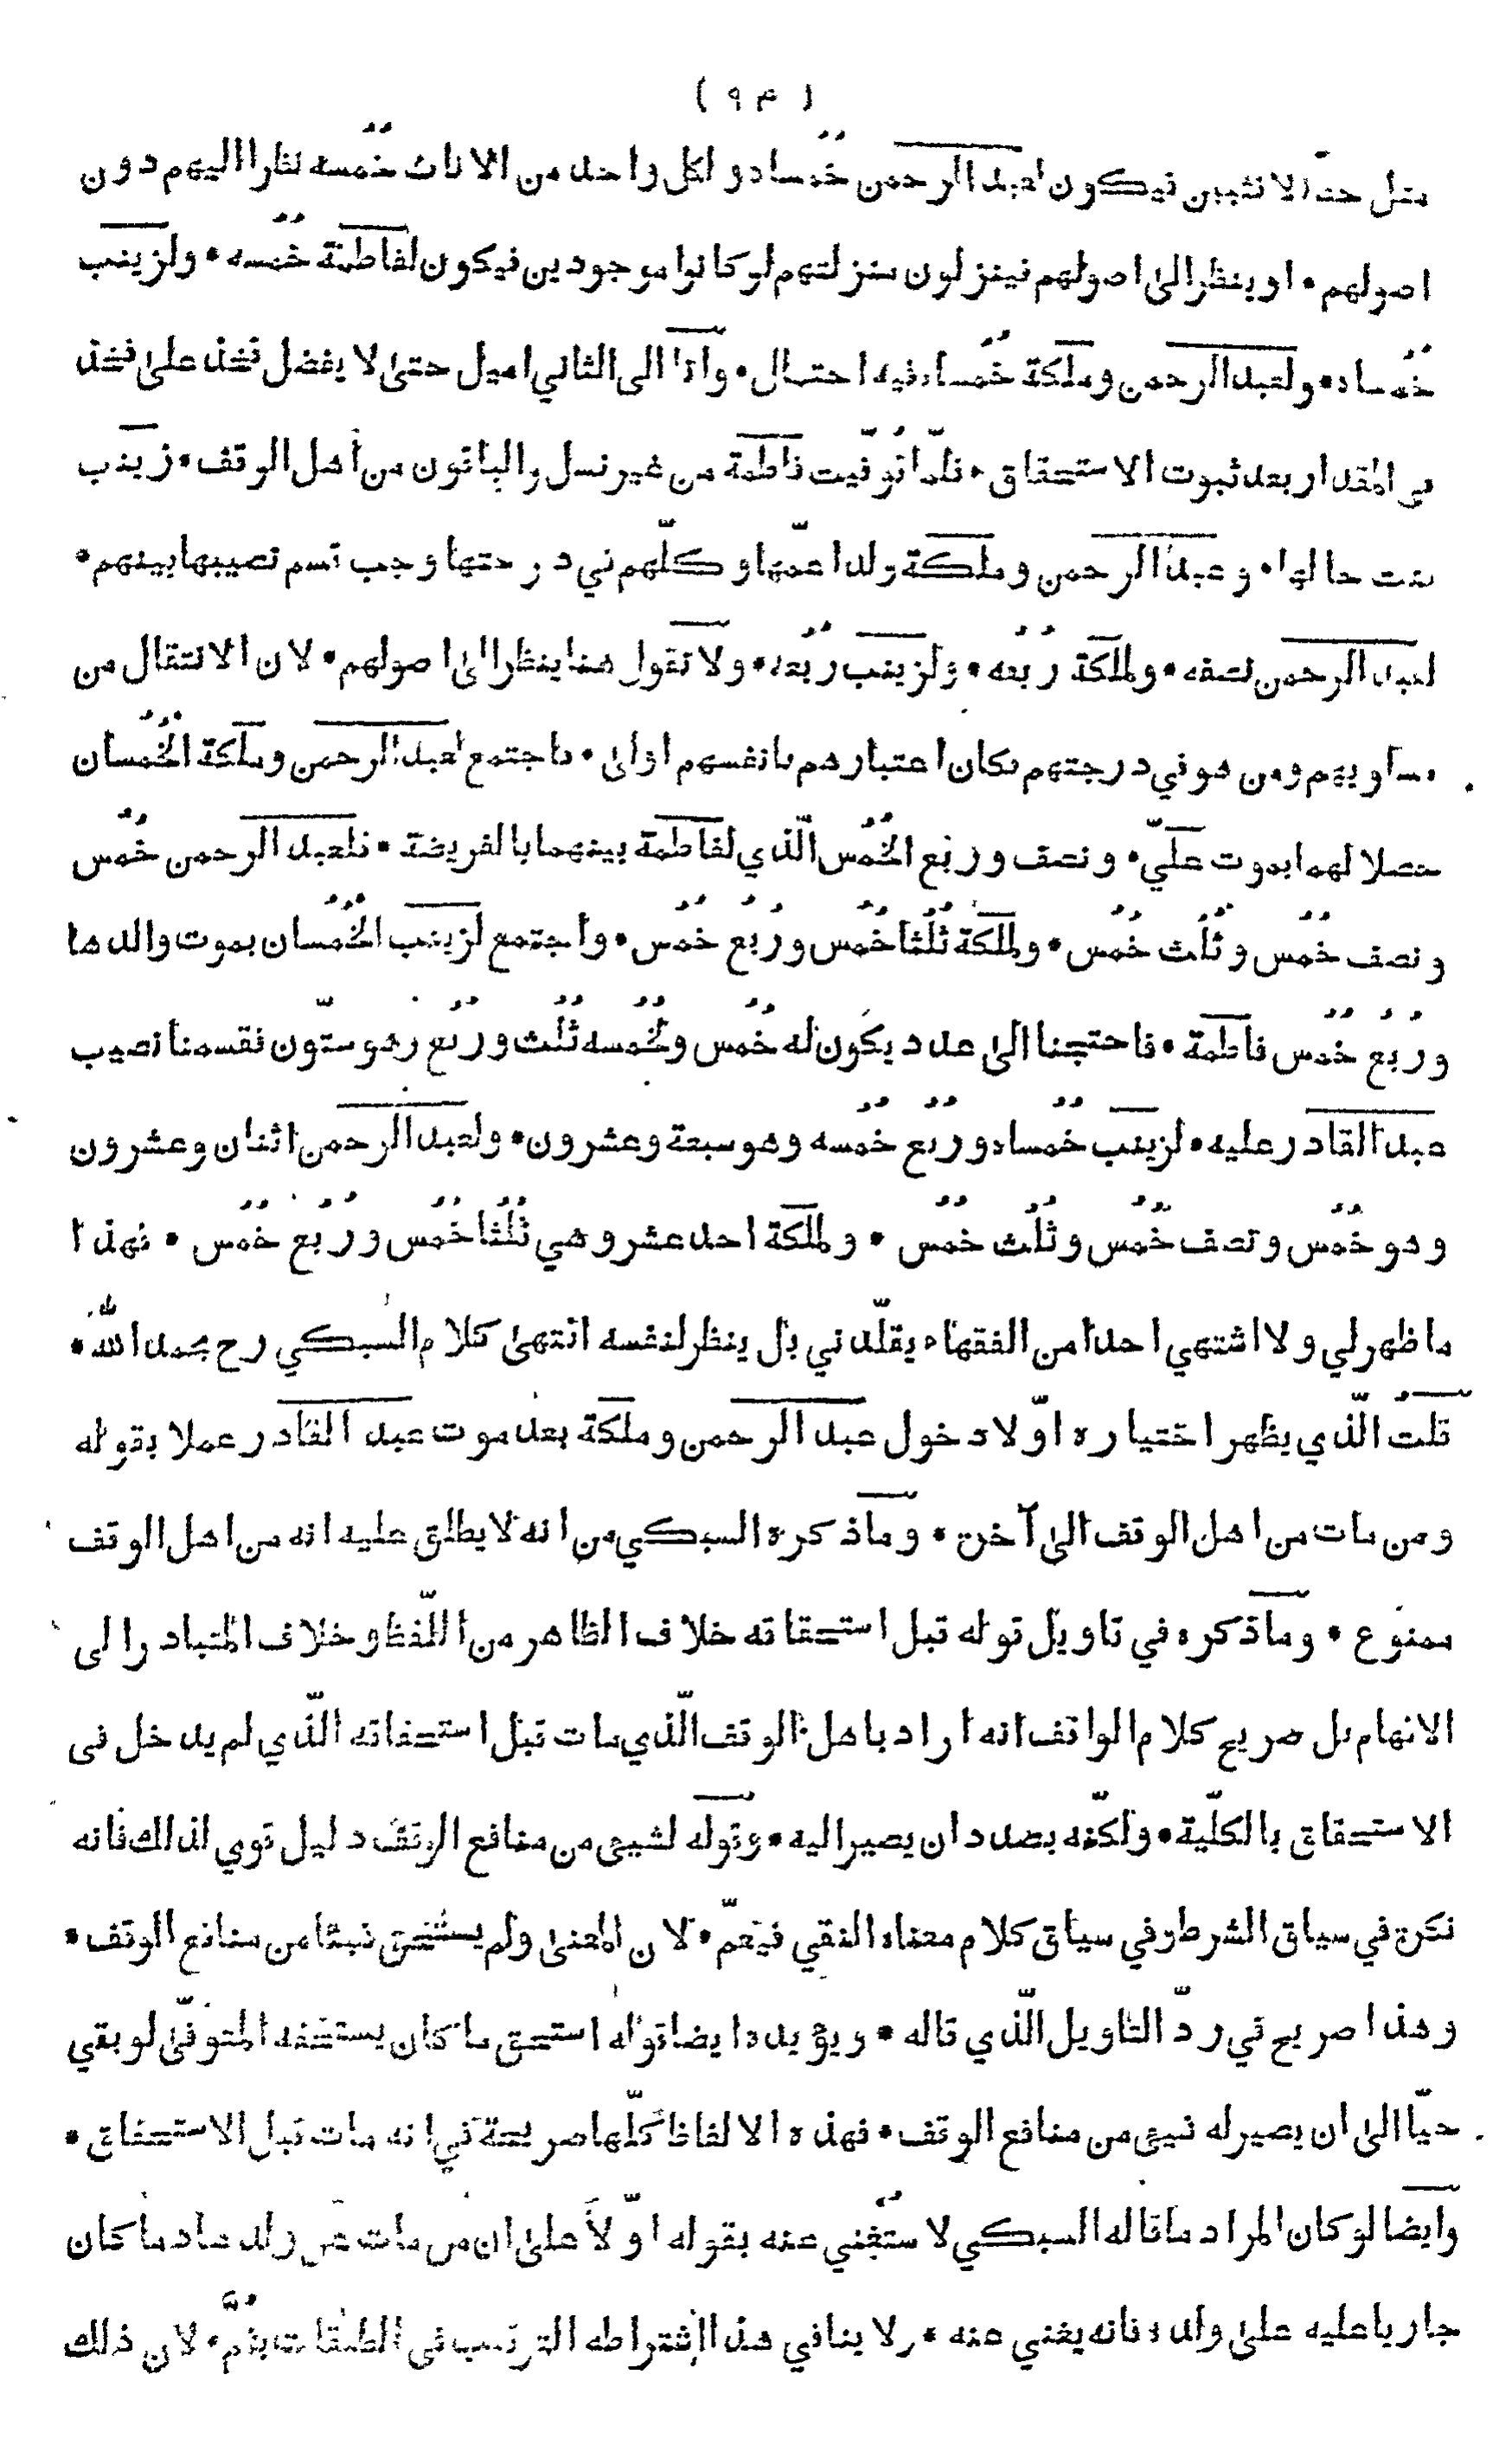 ( ٩٣ )
مثل حظ الانثيين فيكون لعبد الرحمن خُمساه ولكل واحدة من الاناث خُمسه نظرا اليهم دون
اصولهم • او ينظر الىٰ اصولهم فينزلون منزلتهم لو كانوا موجودين فيكون لفاطمة خُمسه • ولزينب
خُمساه • ولعبد الرحمن وملكة خُمساه فيه احتمال • وانا الى الثاني اميل حتىٰ لا يفضل فخذ علىٰ فخذ
في المقدار بعد ثبوت الاستحقاق • فلمّا تُوفّيت فاطمة من غير نسل والباقون من أهل الوقف • زينب
بنت خالها • وعبد الرحمن وملكة ولدا عمّها وكلّهم في درجتها وجب قسم نصيبها بينهم •
لعبد الرحمن نصفه • ولملكة رُبعه • ولزينب رُبعه • ولا نقول هنا ينظر الىٰ اصولهم • لان الانتقال من
مساويهم ومن هو في درجتهم فكان اعتبارهم بانفسهم اولىٰ • فاجتمع لعبد الرحمن وملكة الخُمسان
حصلا لهما بموت عليّ • ونصف وربُع الخُمس الّذي لفاطمة بينهما بالفريضة • فلعبد الرحمن خُمس
ونصف خُمس وثُلُث خُمس • ولملكة ثُلُثا خُمس ورُبُع خُمس • واجتمع لزينب الخُمسان بموت والدها
ورُبُع خُمس فاطمة • فاحتجنا الىٰ عدد يكون له خُمس ولخُمسه ثُلُث ورُبُع وهو ستّون فقسمنا نصيب
عبد القادر عليه • لزينب خُمساه ورُبُع خُمسه وهو سبعة وعشرون • ولعبد الرحمن اثنان وعشرون
وهو خُمس ونصف خُمس وثُلُث خُمس • ولملكة احد عشر وهي ثُلُثا خُمس ورُبُع خُمس • فهذا
ما ظهر لي ولا اشتهي احدا من الفقهاء يقلّدني بل ينظر لنفسه انتهىٰ كلام السبكي رح بحمد اللّٰه •
قلت الّذي يظهر اختياره اوّلا دخول عبد الرحمن وملكة بعد موت عبد القادر عملا بقوله
ومن مات من اهل الوقف الىٰ آخره • وما ذكره السبكي من انه لا يطلق عليه انه من اهل الوقف
ممنوع • وما ذكره في تاويل قوله قبل استحقاقه خلاف الظاهر من اللّفظ وخلاف المتبادر الى
الافهام بل صريح كلام الواقف انه اراد باهل الوقف الّذي مات قبل استحقاقه الّذي لم يدخل في
الاستحقاق بالكلّية • ولكنّه بصدد ان يصير اليه • وقوله لشيئ من منافع الوقف دليل قوي لذلك فانه
نكرة في سياق الشرط وفي سياق كلام معناه النفي فيعمّ • لان المعنىٰ ولم يستحق شيئا من منافع الوقف •
وهذا صريح في ردّ التاويل الّذي قاله • ويؤيده ايضا قوله استحق ما كان يستحقه المتوفّىٰ لو بقي
حيّا الىٰ ان يصير له شيئ من منافع الوقف • فهذه الالفاظ كلّها صريحة في انه مات قبل الاستحقاق •
وايضا لو كان المراد ما قاله السبكي لاستُغني عنه بقوله اوّلا علىٰ ان من مات عن ولد عاد ما كان
جاريا عليه علىٰ ولده فانه يغني عنه • ولا ينافي هذا اشتراطه الترتيب في الطبقات بثُمَّ • لان ذلك